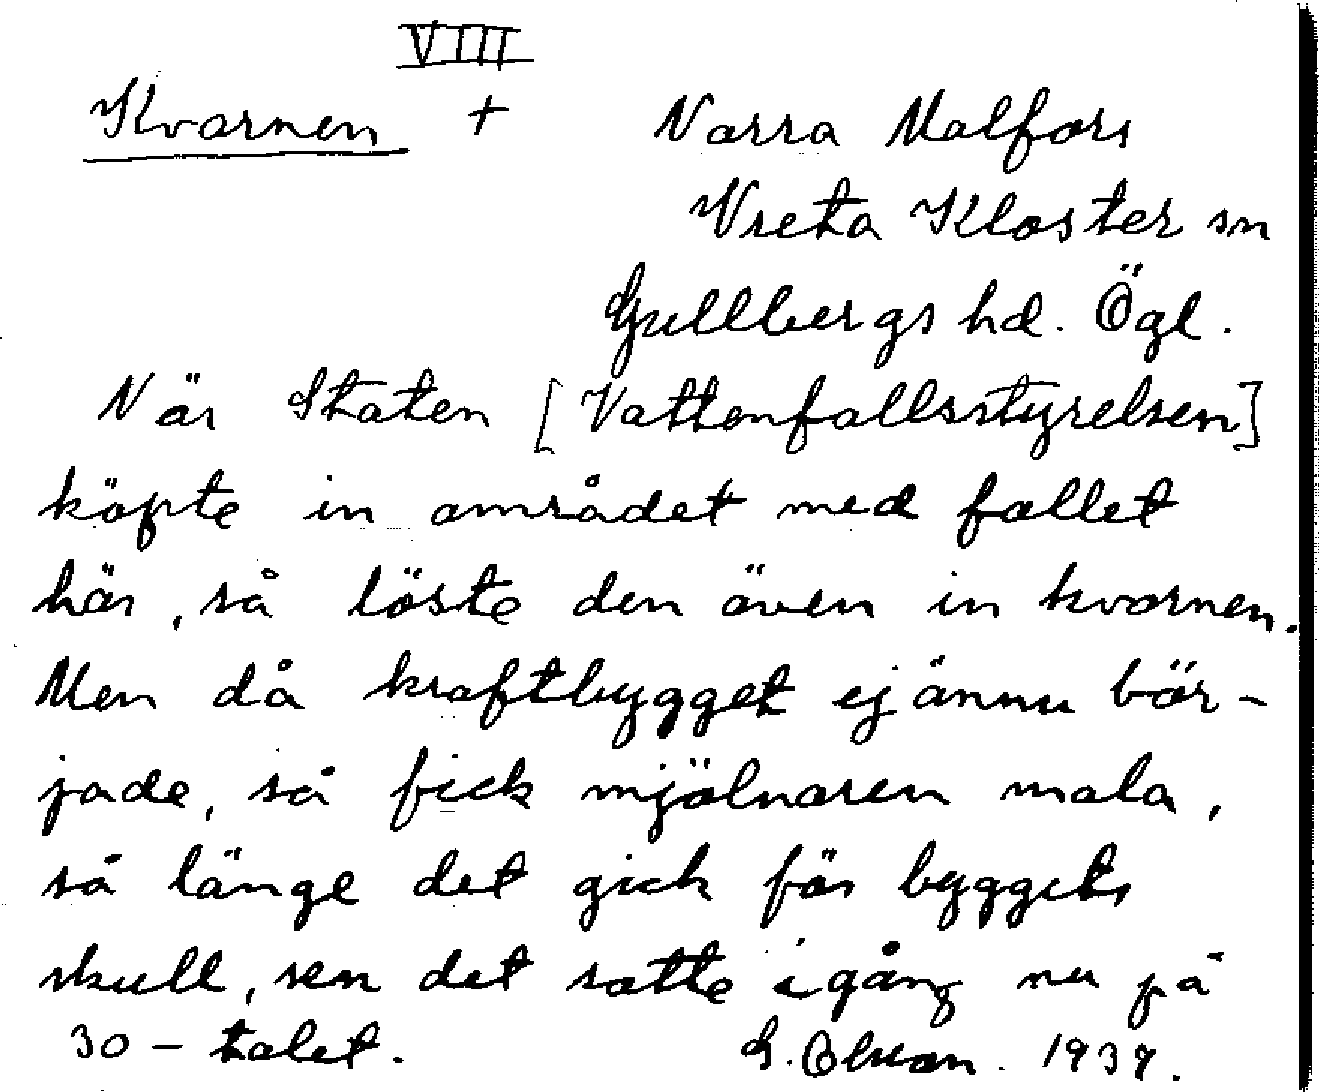 VIII
Kvarnen + Norra Malfors
Vreta Kloster sn
Gullbergs hd. Ögl.
När Staten [Vattenfallsstyrelsen]
köpte in området med fallet
här, så löste den även in kvarnen.
Men då kraftbygget ej ännu bör-
jade, så fick mjölnaren mala,
så länge det gick för byggets
skull, sen det satte igång nu på
30-talet. G. Olsson. 1937.